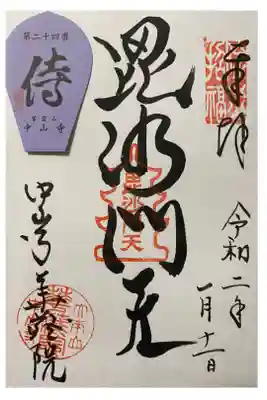 奉拝
令和二年
一月十一日
毘沙門天
中山寺華蔵院
第二十四番
侍
紫雲山
中山寺